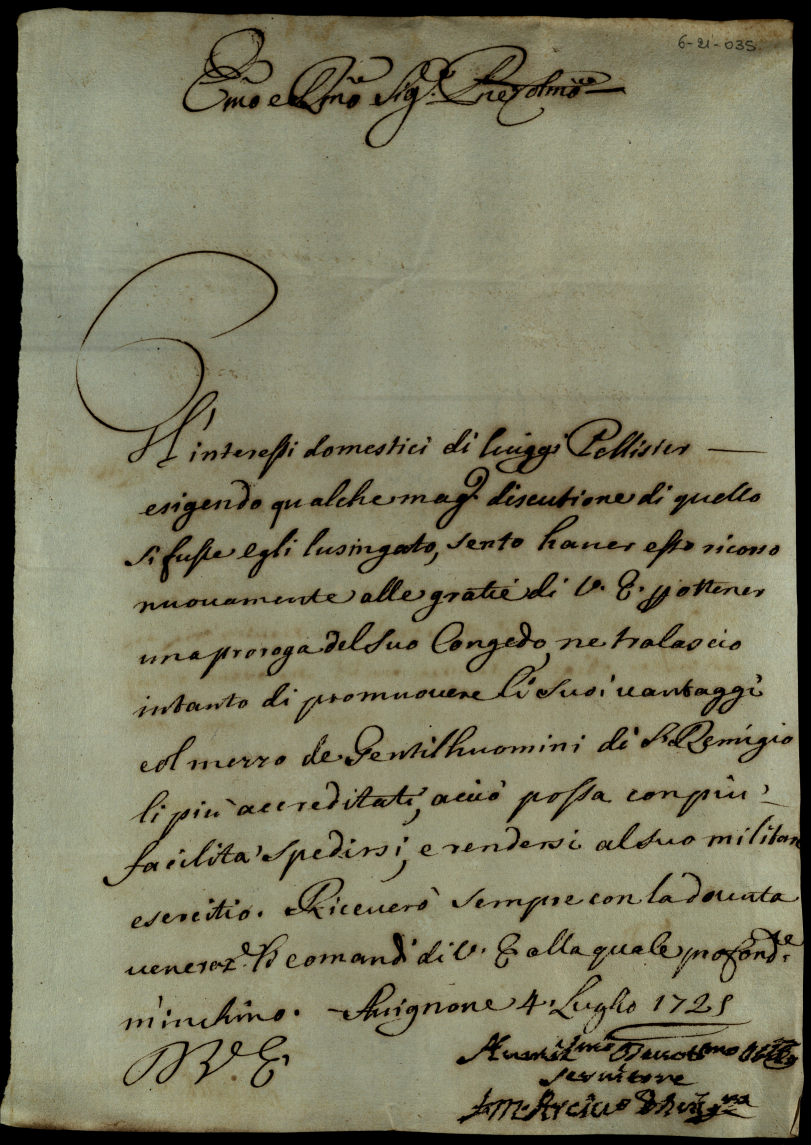 6-21-035
Em̃o e Rm̃o Sig.re Pne Colmo
Gl'interessi domestici di luiggi Pellisier
esigendo qualche mag.r discutione di quello
si fusse egli lusingato, sento hauer esso ricorso
nuouamente alle gratie di V. E. p ottener
una proroga del suo Congedo, ne tralascio
intanto di promuouere li suoi uantaggi
col mezzo de Gentilhuomini di S. Remigio
li più accreditati, acciò possa con più
facilità spedirsi, e rendersi al suo militar
esercitio. Riceuerò sempre con la douuta
veneraz.e li comandi di V. E. alla quale profond.te
m'inchino. Auignone 4 Luglio 1725
D V. E.
Humil.mo Deuot.mo
seruitore
F. M. Arciu.o d'Auig.ne